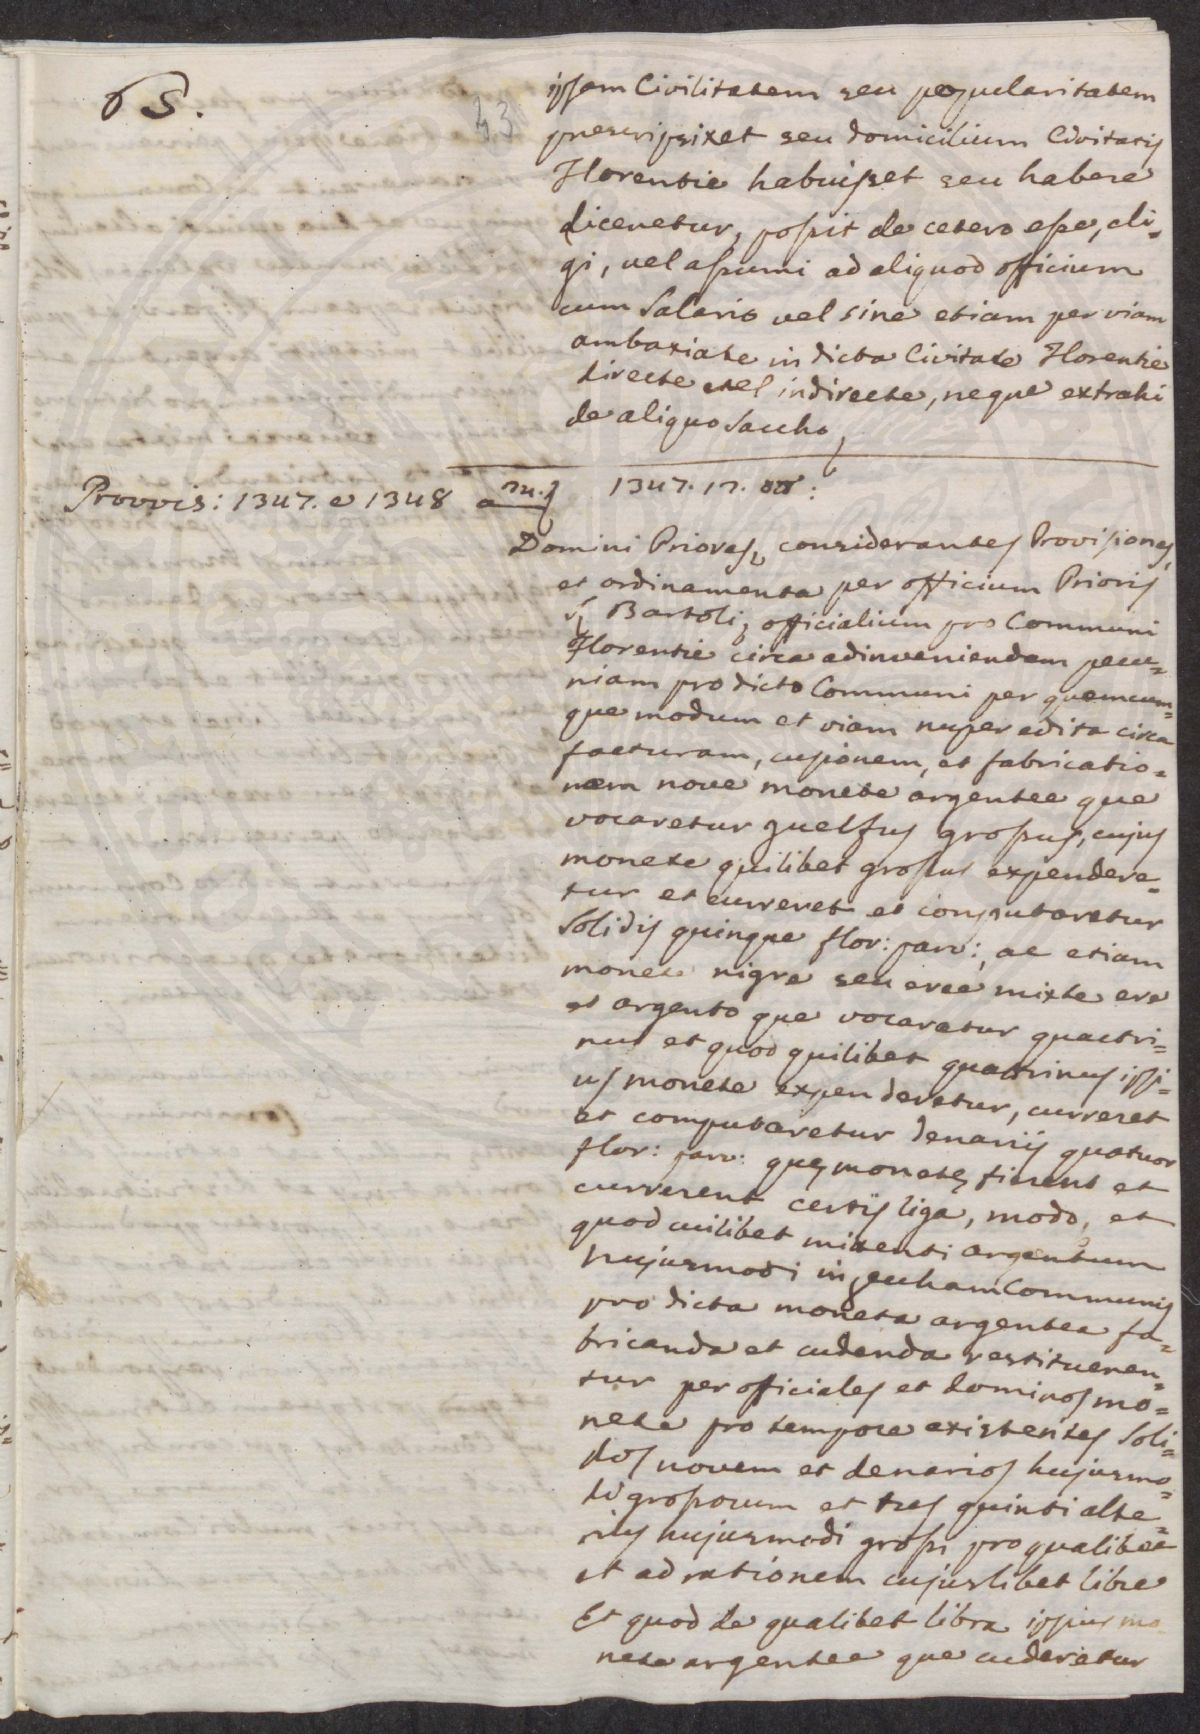 65.
43
ipsam Civilitatem seu popularitatem
prescripsixet seu domicilium Civitatis
Florentie habuisset seu habere
diceretur, possit de cetero esse, eli=
gi, vel assumi ad aliquod officium
cum Salario vel sine etiam per viam
ambaxiate in dicta Civitate Florentie
directe vel indirecte, neque extrahi
de aliquo Saccho,
Provvis: 1347. e 1348 a 1347. 17.
Domini Priores, considerantes Provisiones,
et ordinamenta per officium Prioris
Bartoli, officialium pro Communi
Florentie circa adinveniendam pecu=
niam pro dicto Communi per quemcum=
que modum et viam nuper edita circa
facturam, cusionem, et fabricatio=
nem nove monete argentee que
vocaretur guelfus grossus, cujus
monete quilibet grossus expendere=
tur et curreret et computaretur
Solidis quinque flor: parv:, ac etiam
monete nigre seu eree mixte ere
et argento que vocaretur quactri=
nus et quod quilibet quatrinus ipsi=
us monete expenderetur, curreret
et computaretur denariis quatuor
flor: parv: quę monetę fierent et
currerent certis liga, modo, et
quod cuilibet mittenti argentum
hujusmodi in zeccham Communis
pro dicta moneta argentea fa=
bricanda et cudenda restitueren=
tur per officiales et dominos mo=
nete pro tempore existentes Soli=
dos novem et denarios hujusmo=
di grossorum et tres quinti alte=
rius hujusmodi grossi pro qualibet
et ad rationem cujuslibet libre
Et quod de qualibet libra ipsius mo
nete argentee que cuderetur